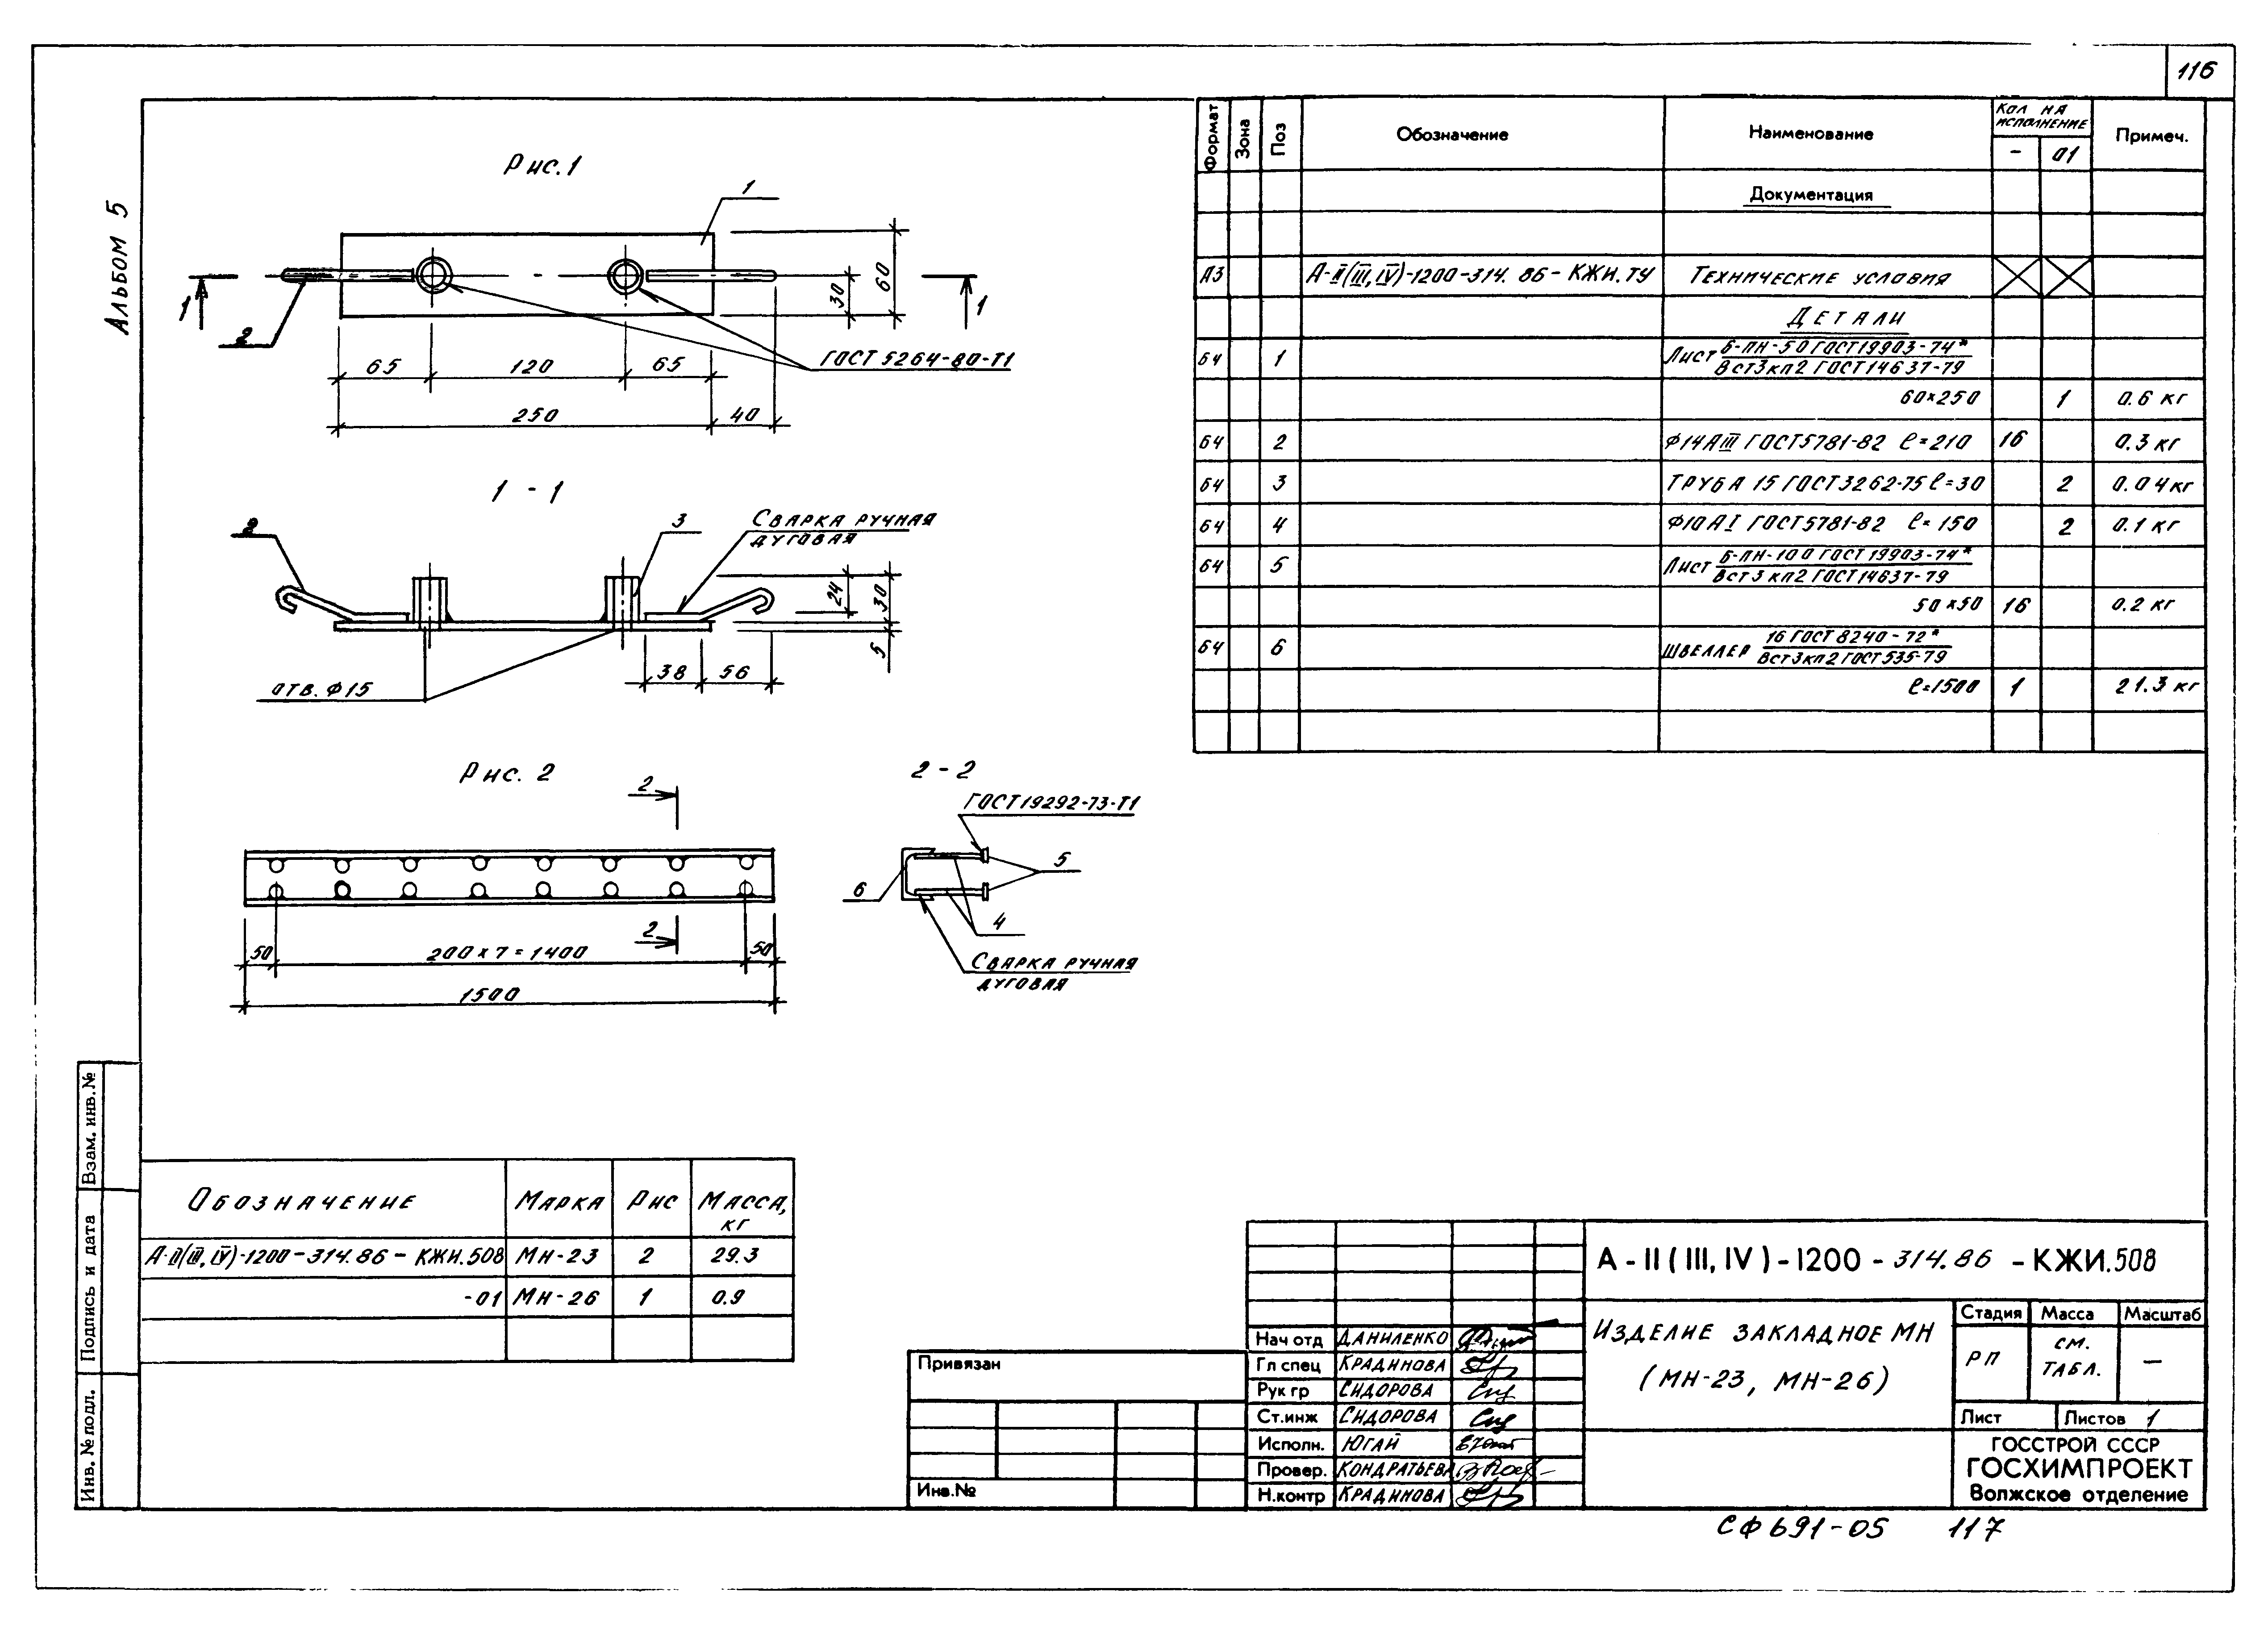 116
Альбом 5
Рис.1
1
2
1
1
30
60
ГОСТ 5264-80-Т1
65
120
65
250
40
1 - 1
2
3
Сварка ручная
дуговая
24
30
5
38
56
отв. Ф15
Рис. 2
2
2
50
200 х 7 = 1400
50
1500
2 - 2
ГОСТ 19292-73-Т1
5
6
4
Сварка ручная
дуговая
Формат Зона Поз Обозначение Наименование Кол на исполнение Примеч.
- 01
Документация
А3 А-II(III,IV)-1200-314.86-КЖИ.ТУ Технические условия
Детали
БЧ 1 Лист Б-ПН-50 ГОСТ19903-74*
Вст3кп2 ГОСТ14637-79
60х250 1 0.6 кг
БЧ 2 Ф14АIII ГОСТ5781-82 ℓ=210 16 0.3 кг
БЧ 3 Труба 15 ГОСТ3262-75 ℓ=30 2 0.04кг
БЧ 4 Ф10АI ГОСТ5781-82 ℓ=150 2 0.1 кг
БЧ 5 Лист Б-ПН-100 ГОСТ 19903-74*
Вст3 кп2 ГОСТ14637-79
50х50 16 0.2 кг
БЧ 6 Швеллер 16 ГОСТ 8240-72*
Вст3кп2 ГОСТ535-79
ℓ=1500 1 21.3 кг
Обозначение Марка Рис Масса, кг
А-II(III,IV)-1200-314.86-КЖИ.508 МН-23 2 29.3
-01 МН-26 1 0.9
Взам. инв.№
Подпись и дата
Инв.№ подл.
Привязан
Инв.№
Нач отд Даниленко
Гл спец Крадинова
Рук гр Сидорова
Ст.инж Сидорова
Исполн. Югай
Провер. Кондратьева
Н.контр Крадинова
А-II(III,IV)-1200-314.86-КЖИ.508
Изделие закладное МН
(МН-23, МН-26)
Стадия Масса Масштаб
РП см. табл. —
Лист Листов 1
ГОССТРОЙ СССР
ГОСХИМПРОЕКТ
Волжское отделение
СФ 691-05 117